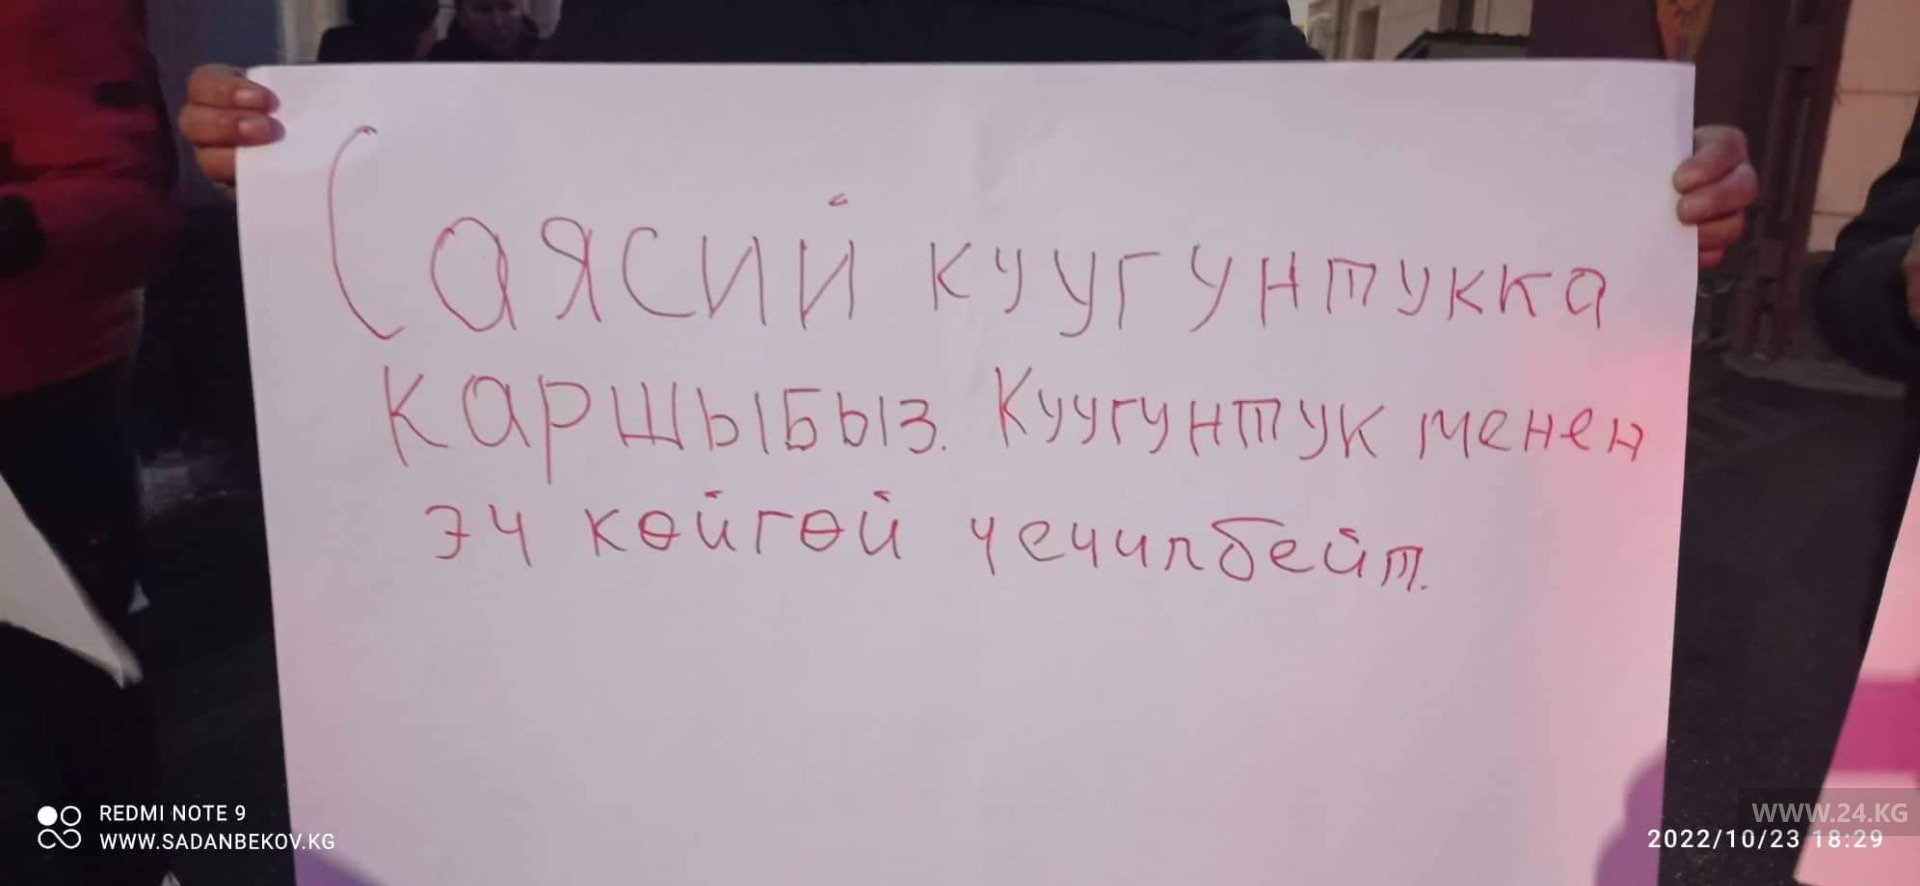 Саясий куугунтукка
каршыбыз. Куугунтук менен
эч көйгөй чечилбейт.
REDMI NOTE 9
WWW.SADANBEKOV.KG
WWW.24.KG
2022/10/23 18:29